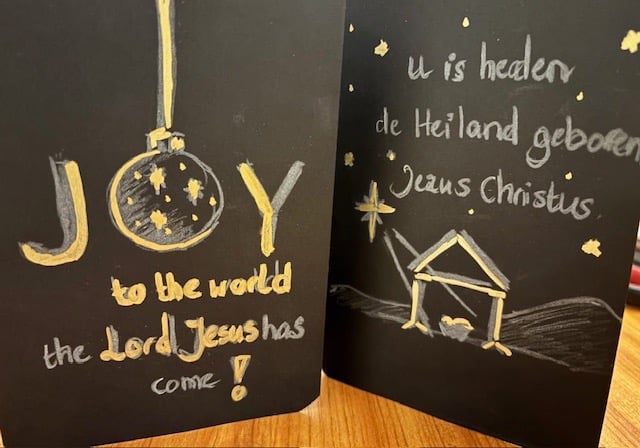 JOY
to the world
the Lord Jesus has
come!
u is heden
de Heiland geboren
Jezus Christus